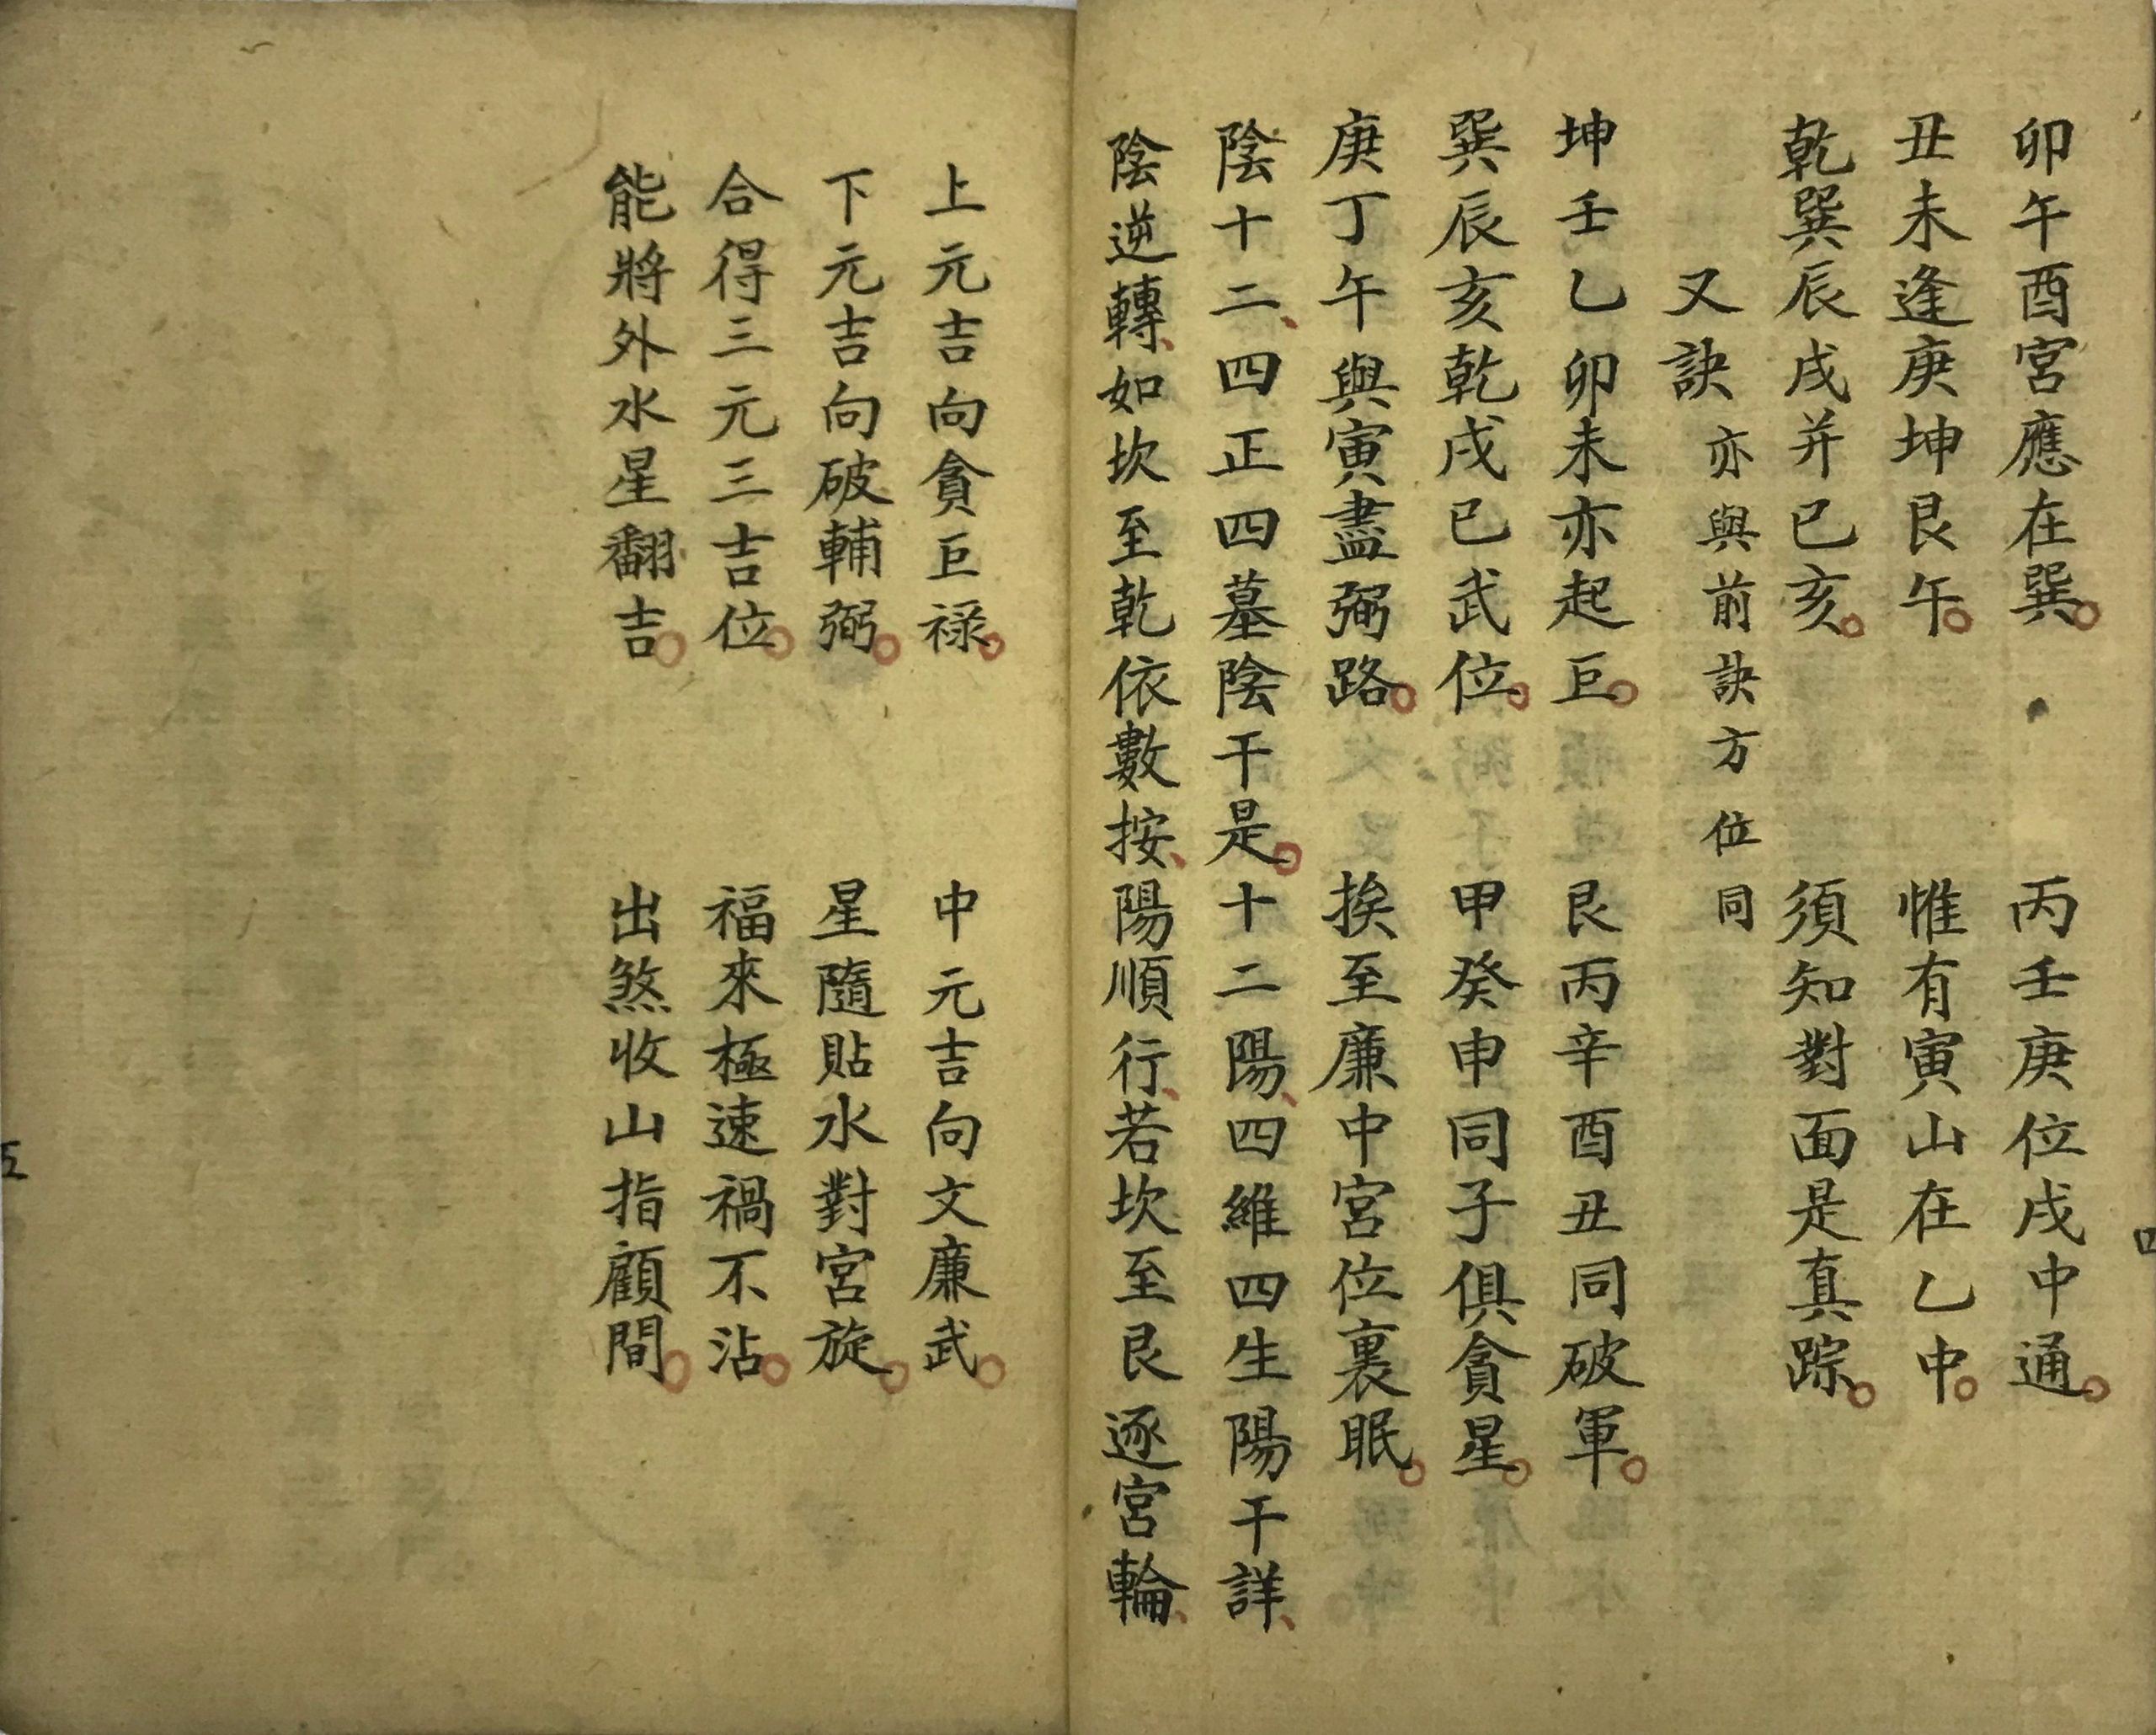 卯午酉宮應在巽。丙壬庚位戌中通。
丑未逢庚坤艮午。惟有寅山在乙中。
乾巽辰戌并巳亥。須知對面是真踪。
又訣亦與前訣方位同
坤壬乙卯未亦起巨。艮丙辛酉丑同破軍。
巽辰亥乾戌巳武位。甲癸申同子俱貪星。
庚丁午與寅盡弼路。挨至廉中宮位裏眠。
陰十二、四正四墓陰干是。十二陽、四維四生陽干詳、
陰逆轉、如坎至乾依數按、陽順行、若坎至艮逐宮輪、
四
上元吉向貪巨祿。中元吉向文廉武。
下元吉向破輔弼。星隨貼水對宮旋。
合得三元三吉位。福來極速禍不沾。
能將外水星翻吉。出煞收山指顧間。
五